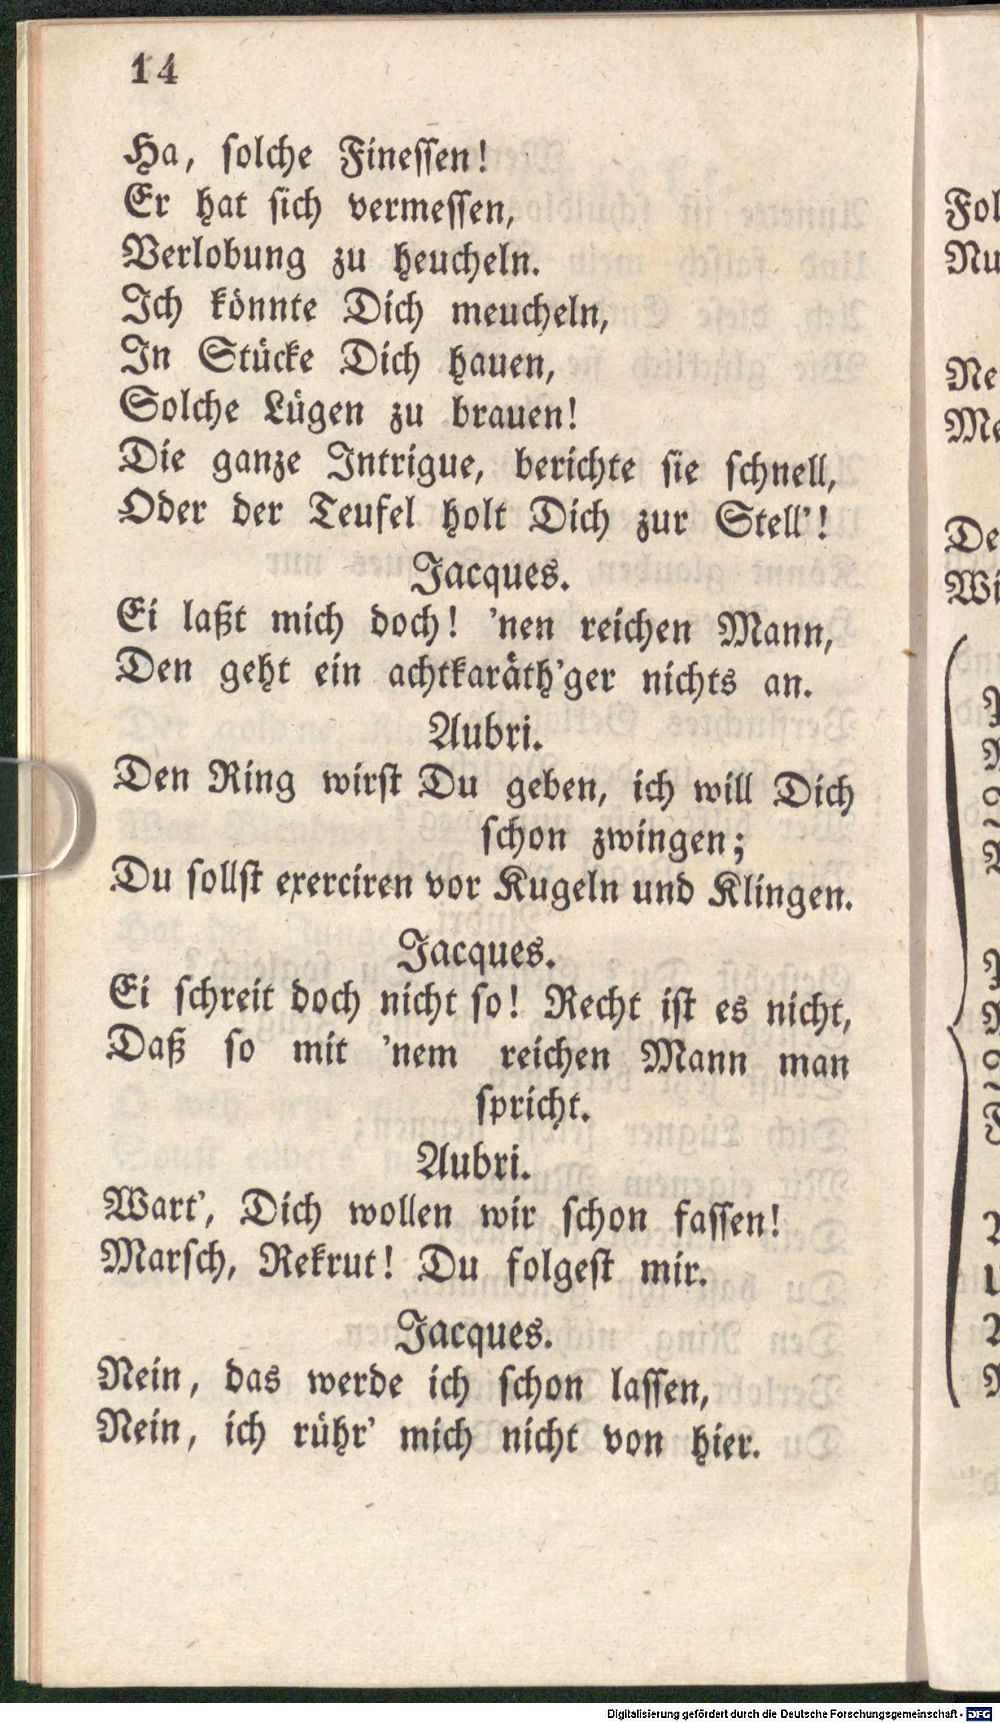 14
Ha, solche Finessen!
Er hat sich vermessen,
Verlobung zu heucheln.
Ich könnte Dich meucheln,
In Stücke Dich hauen,
Solche Lügen zu brauen!
Die ganze Intrigue, berichte sie schnell,
Oder der Teufel holt Dich zur Stell'!
Jacques.
Ei laßt mich doch! 'nen reichen Mann,
Den geht ein achtkaräth'ger nichts an.
Aubri.
Den Ring wirst Du geben, ich will Dich
schon zwingen;
Du sollst exerciren vor Kugeln und Klingen.
Jacques.
Ei schreit doch nicht so! Recht ist es nicht,
Daß so mit 'nem reichen Mann man
spricht.
Aubri.
Wart', Dich wollen wir schon fassen!
Marsch, Rekrut! Du folgest mir.
Jacques.
Nein, das werde ich schon lassen,
Nein, ich rühr' mich nicht von hier.
Fol
Nu
Ne
Me
De
Wi
Digitalisierung gefördert durch die Deutsche Forschungsgemeinschaft - DFG